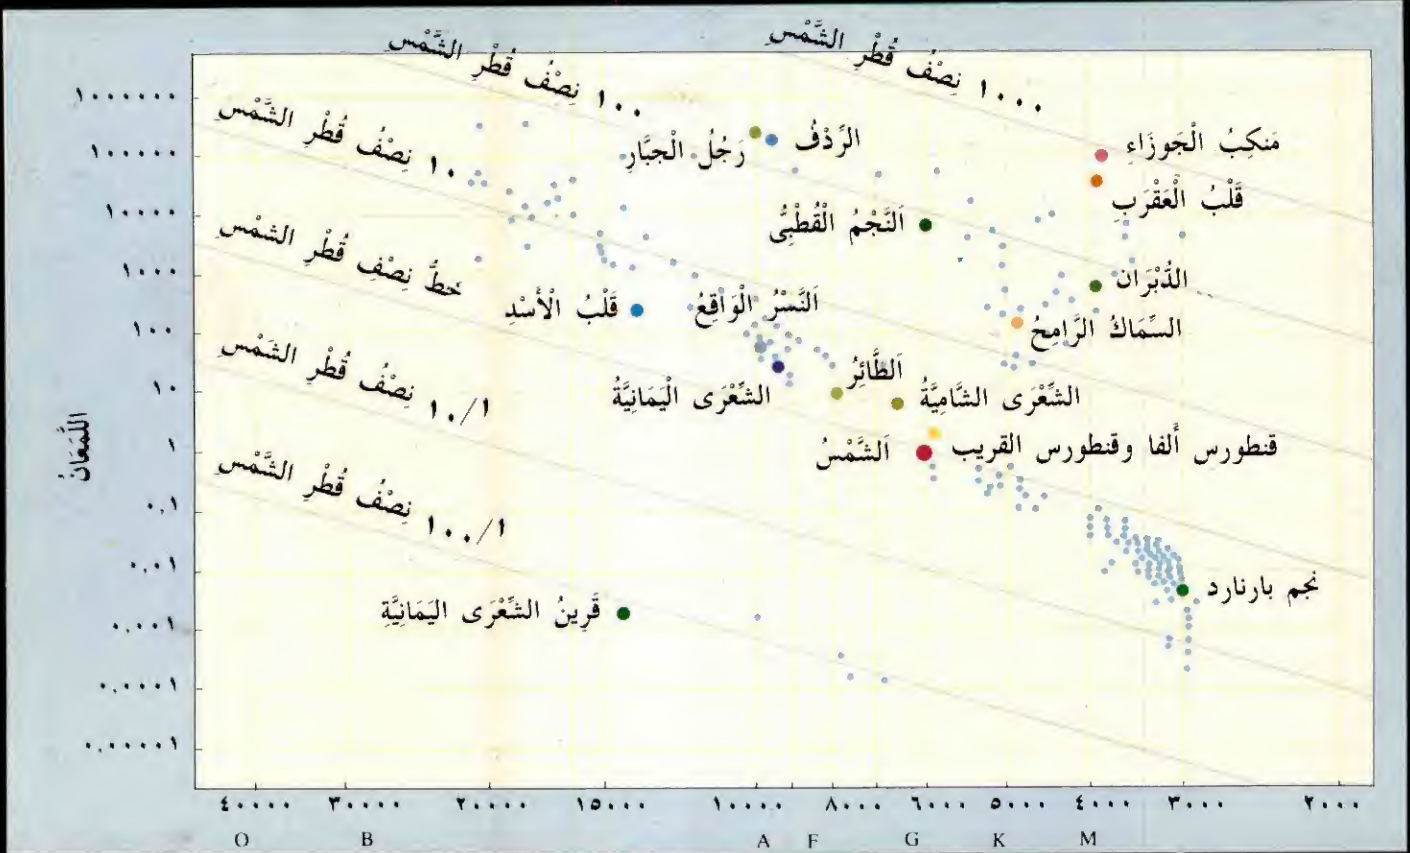 ١٠٠٠ نِصْفُ قُطْرِ الشَّمْسِ
١٠٠ نِصْفُ قُطْرِ الشَّمْسِ
١٠ نِصْفُ قُطْرِ الشَّمْسِ
خطُّ نِصْفِ قُطْرِ الشمْسِ
١/١٠ نِصْفُ قُطْرِ الشَمْسِ
١/١٠٠ نِصْفُ قُطْرِ الشَّمْسِ
١٠٠٠٠٠٠
١٠٠٠٠٠
١٠٠٠٠
١٠٠٠
١٠٠
١٠
١
٠,١
٠,٠١
٠,٠٠١
٠,٠٠٠١
٠,٠٠٠٠١
اللَّمَعَانُ
مَنكِبُ الْجَوزَاءِ
الرِّدْفُ
رَجُلُ الْجبَّارِ
قَلْبُ الْعَقْرَبِ
اَلنَّجْمُ الْقُطْبِىُّ
الدُّبْرَان
قَلْبُ الْأَسْدِ
اَلنَّسْرُ الْوَاقِعُ
السِّمَاكُ الرَّامِحُ
اَلطَّائِرُ
الشِّعْرَى الْيَمَانِيَّةُ
الشِّعْرَى الشَّامِيَّةُ
اَلشَّمْسُ
قنطورس أَلفا وقنطورس القريب
نجم بارنارد
قَرِينُ الشِّعْرَى اليَمَانِيَّةِ
٤٠٠٠٠ ٣٠٠٠٠ ٢٠٠٠٠ ١٥٠٠٠ ١٠٠٠٠ ٨٠٠٠ ٦٠٠٠ ٥٠٠٠ ٤٠٠٠ ٣٠٠٠ ٢٠٠٠
O B A F G K M